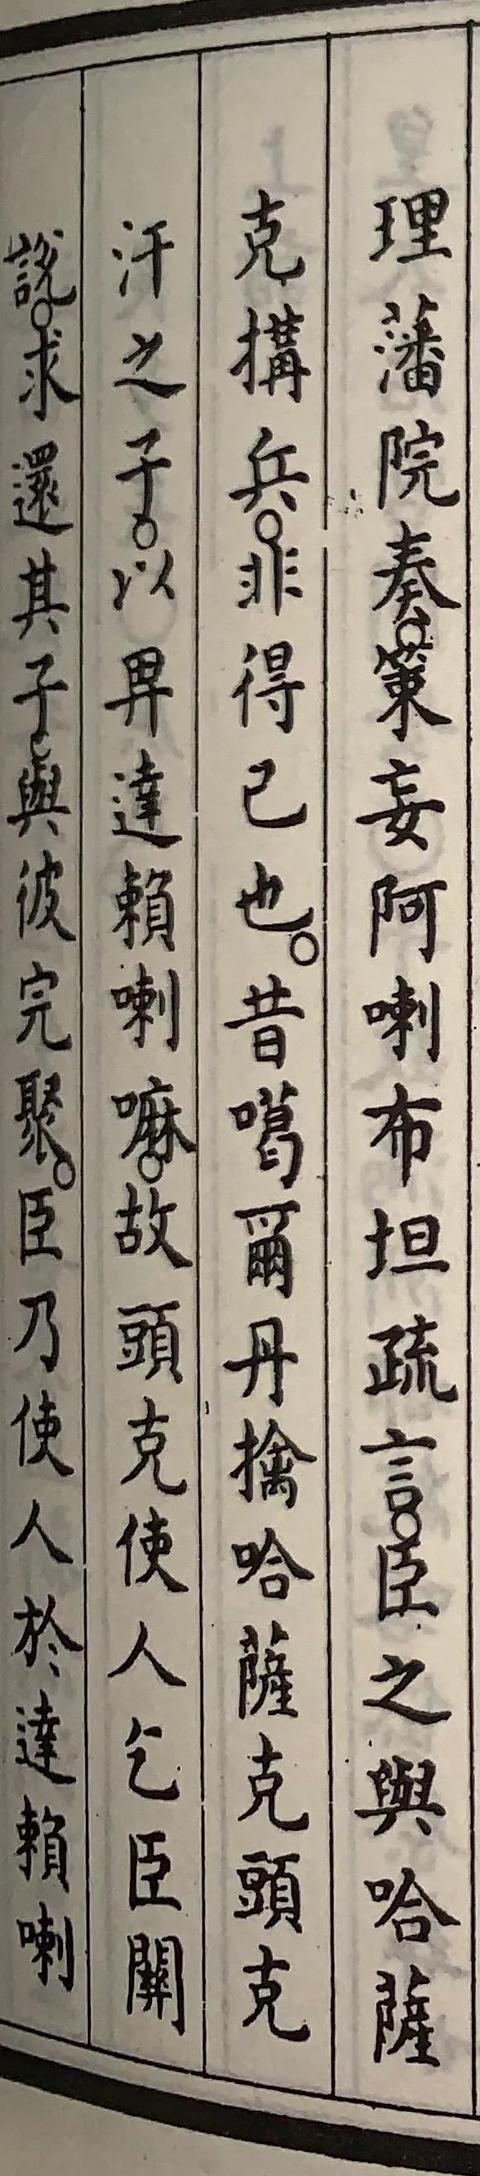 理藩院奏。策妄阿喇布坦疏言。臣之與哈薩
克搆兵。非得已也。昔噶爾丹擒哈薩克頭克
汗之子。以畀達賴喇嘛。故頭克使人乞臣關
說。求還其子。與彼完聚。臣乃使人於達賴喇